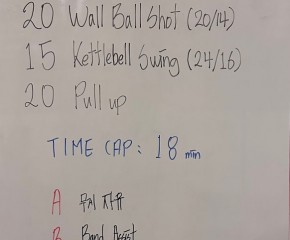 20 Wall Ball Shot (20/14)
15 Kettlebell Swing (24/16)
20 Pull up
TIME CAP: 18 min
A 무게 자유
B Band Assist